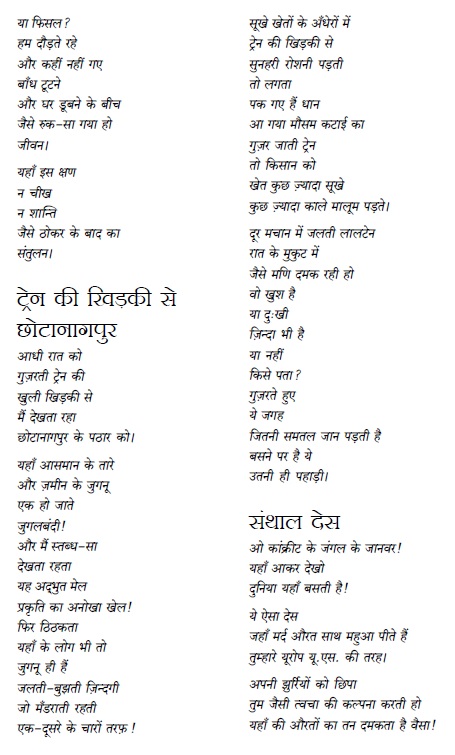 या फिसल?
हम दौड़ते रहे
और कहीं नहीं गए
बाँध टूटने
और घर डूबने के बीच
जैसे रुक-सा गया हो
जीवन।
यहाँ इस क्षण
न चीख
न शान्ति
जैसे ठोकर के बाद का
संतुलन।
ट्रेन की खिड़की से
छोटानागपुर
आधी रात को
गुज़रती ट्रेन की
खुली खिड़की से
मैं देखता रहा
छोटानागपुर के पठार को।
यहाँ आसमान के तारे
और ज़मीन के जुगनू
एक हो जाते
जुगलबंदी!
और मैं स्तब्ध-सा
देखता रहता
यह अद्‌भुत मेल
प्रकृति का अनोखा खेल!
फिर ठिठकता
यहाँ के लोग भी तो
जुगनू ही हैं
जलती-बुझती ज़िन्दगी
जो मँडराती रहती
एक-दूसरे के चारों तरफ़!
सूखे खेतों के अँधेरों में
ट्रेन की खिड़की से
सुनहरी रोशनी पड़ती
तो लगता
पक गए हैं धान
आ गया मौसम कटाई का
गुज़र जाती ट्रेन
तो किसान को
खेत कुछ ज़्यादा सूखे
कुछ ज़्यादा काले मालूम पड़ते।
दूर मचान में जलती लालटेन
रात के मुकुट में
जैसे मणि दमक रही हो
वो खुश है
या दुःखी
ज़िन्दा भी है
या नहीं
किसे पता?
गुज़रते हुए
ये जगह
जितनी समतल जान पड़ती है
बसने पर है ये
उतनी ही पहाड़ी।
संथाल देस
ओ कांक्रीट के जंगल के जानवर!
यहाँ आकर देखो
दुनिया यहाँ बसती है!
ये ऐसा देस
जहाँ मर्द औरत साथ महुआ पीते हैं
तुम्हारे यूरोप यू.एस. की तरह।
अपनी झुर्रियों को छिपा
तुम जैसी त्वचा की कल्पना करती हो
यहाँ की औरतों का तन दमकता है वैसा!